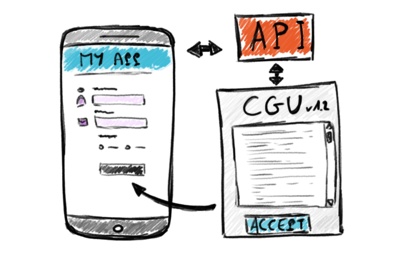 MY APP
API
CGU v1.2
ACCEPT